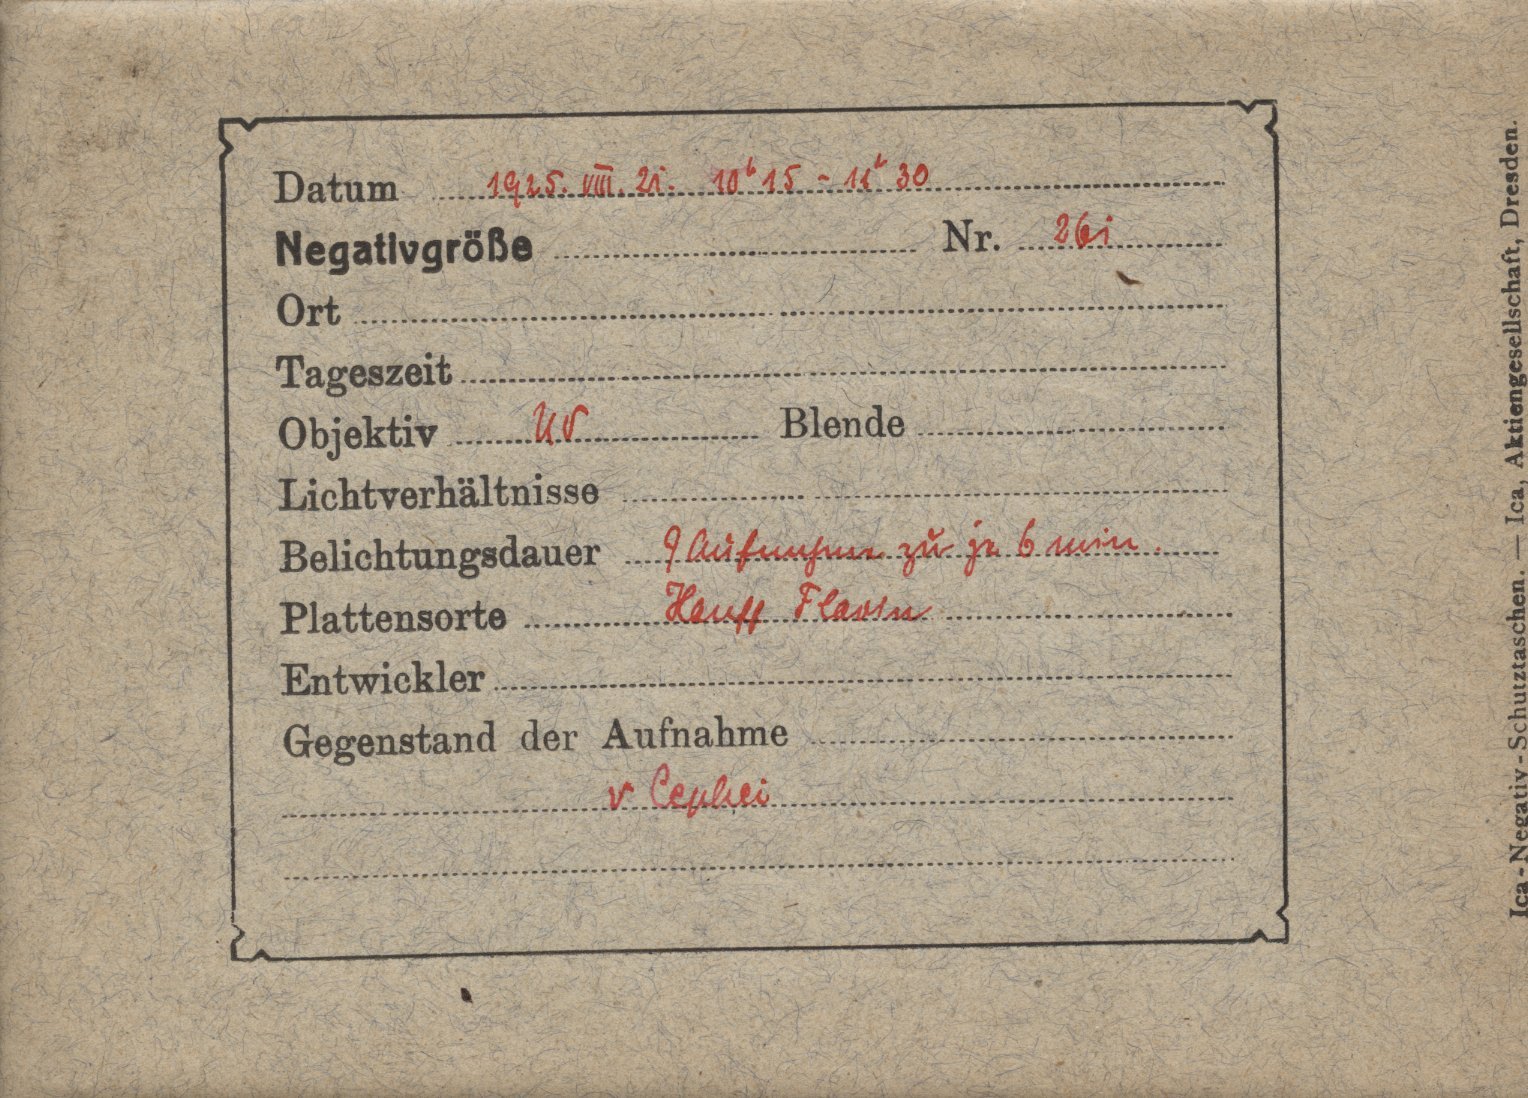 Datum 1925. VIII. 21. 10h 15 - 11h 30
Negativgröße Nr. 261
Ort
Tageszeit
Objektiv UV Blende
Lichtverhältnisse
Belichtungsdauer 9 Aufnahmen zu je 6 min.
Plattensorte Hauff Flavin
Entwickler
Gegenstand der Aufnahme
ν Cephei
Ica-Negativ-Schutztaschen. — Ica, Aktiengesellschaft, Dresden.